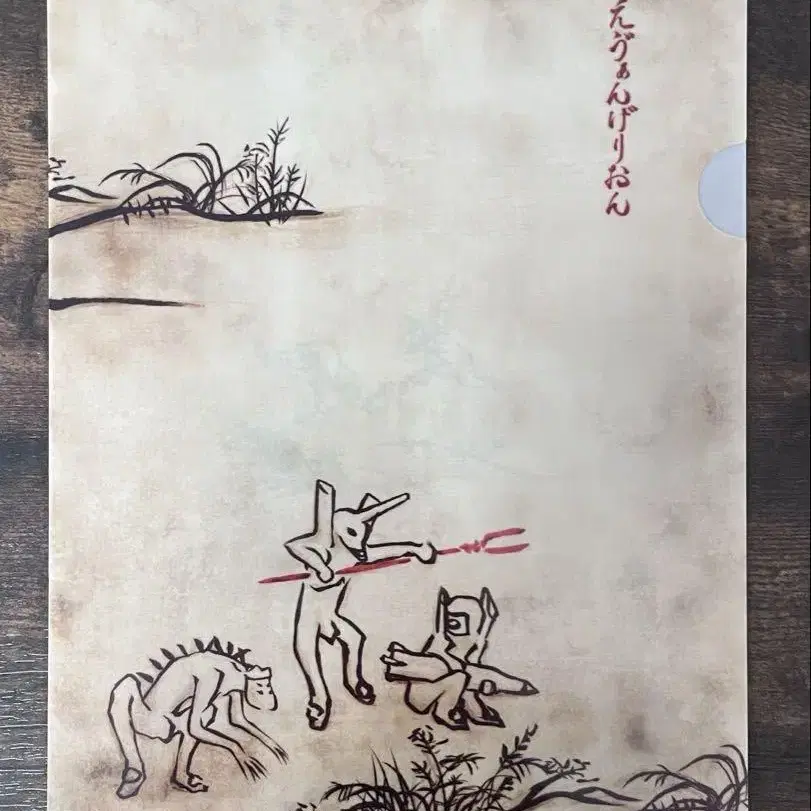 えゔぁんげりおん